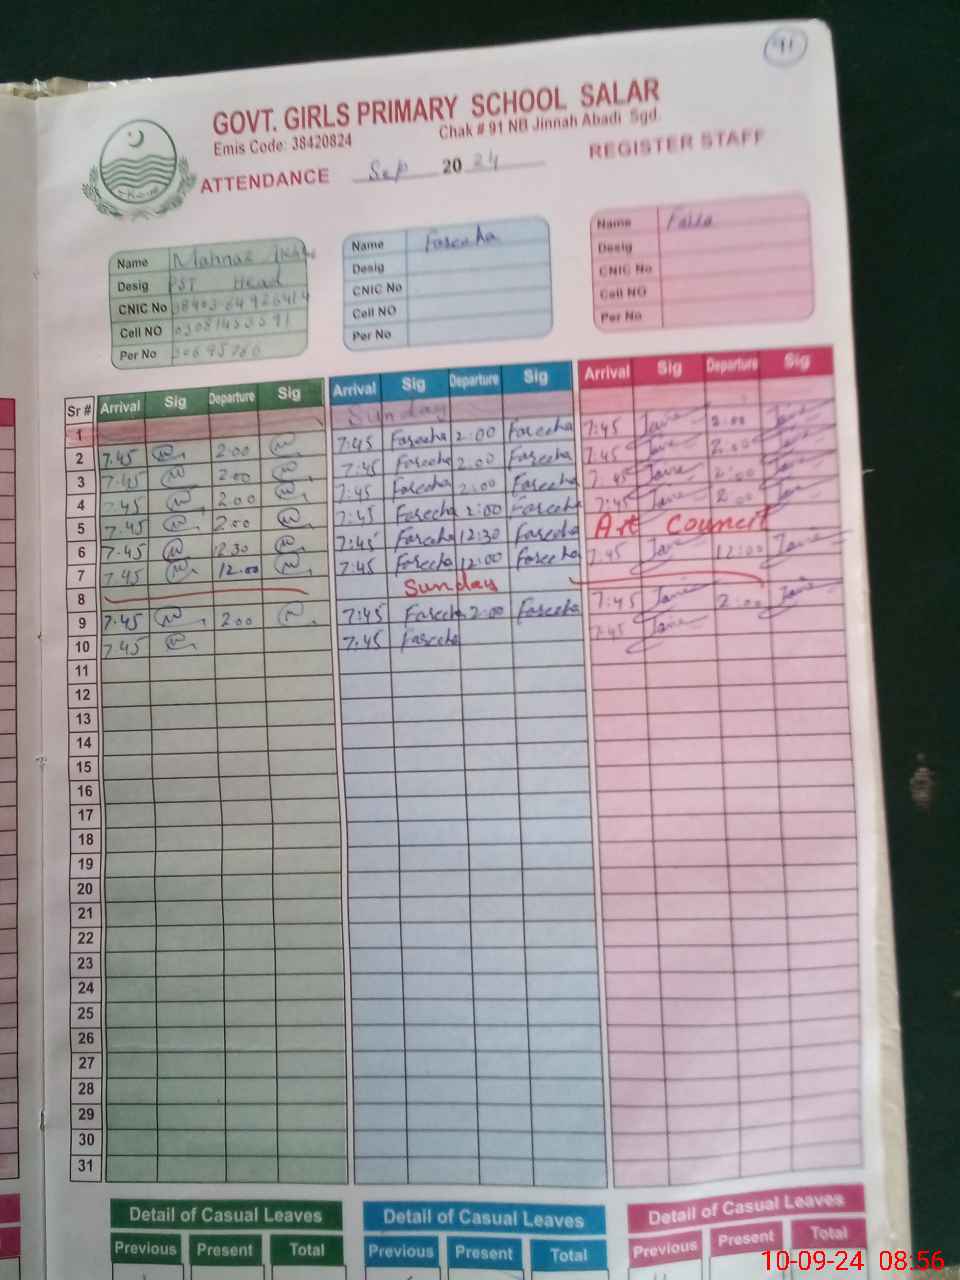 91
GOVT. GIRLS PRIMARY SCHOOL SALAR
Emis Code: 38420824 Chak # 91 NB Jinnah Abadi Sgd.
ATTENDANCE Sep 20 24 REGISTER STAFF
Name Mahnaz Name Fareeha Name
Desig PST Head Desig Desig
CNIC No CNIC No CNIC No
Cell NO Cell NO Cell NO
Per No Per No Per No
Sr # Arrival Sig Departure Sig Arrival Sig Departure Sig Arrival Sig Departure Sig
1 Sunday
2 7:45 2:00 7:45 Fareeha 2:00 Fareeha 7:45 2:00
3 7:45 2:00 7:45 Fareeha 2:00 Fareeha 7:45 2:00
4 7:45 2:00 7:45 Fareeha 2:00 Fareeha 7:45 2:00
5 7:45 2:00 7:45 Fareeha 2:00 Fareeha 7:45 2:00
6 7:45 12:30 7:45 Fareeha 12:30 Fareeha Art Council
7 7:45 12:00 7:45 Fareeha 12:00 Fareeha 7:45 12:00
8 Sunday
9 7:45 2:00 7:45 Fareeha 2:00 Fareeha 7:45 2:00
10 7:45 7:45 Fareeha 7:45
11
12
13
14
15
16
17
18
19
20
21
22
23
24
25
26
27
28
29
30
31
Detail of Casual Leaves Detail of Casual Leaves Detail of Casual Leaves
Previous Present Total Previous Present Total Previous Present Total
10-09-24 08:56